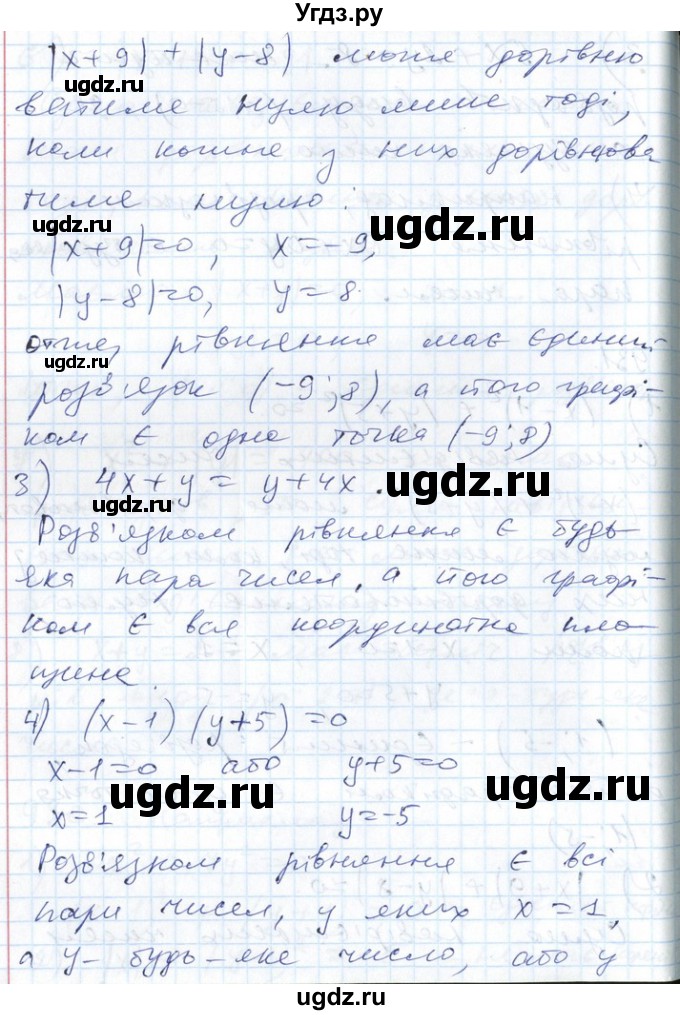 Угдз.ру
|x+9|+|y-8| може дорівню
ватиме нулю лише тоді,
ugdz.ru
коли кожне з них дорівнюва
тиме нулю:
ugdz.ru
ugdz.ru
|x+9|=0, x=-9,
|y-8|=0, y=8.
отже, рівняння має єдиний
ugdz.ru
розв'язок (-9;8), а його графі-
ком є одна точка (-9;8)
3) 4x+y=y+4x.
ugdz.ru
Розв'язком рівняння є будь
яка пара чисел, а його графі-
ком є вся координатна пло
щина.
4) (x-1)(y+5)=0
x-1=0 або y+5=0
ugdz.ru
ugdz.ru
x=1 y=-5
Розв'язком рівняння є всі
пари чисел, у яких x=1,
а y- будь-яке число, або y
ugdz.ru
ugdz.ru